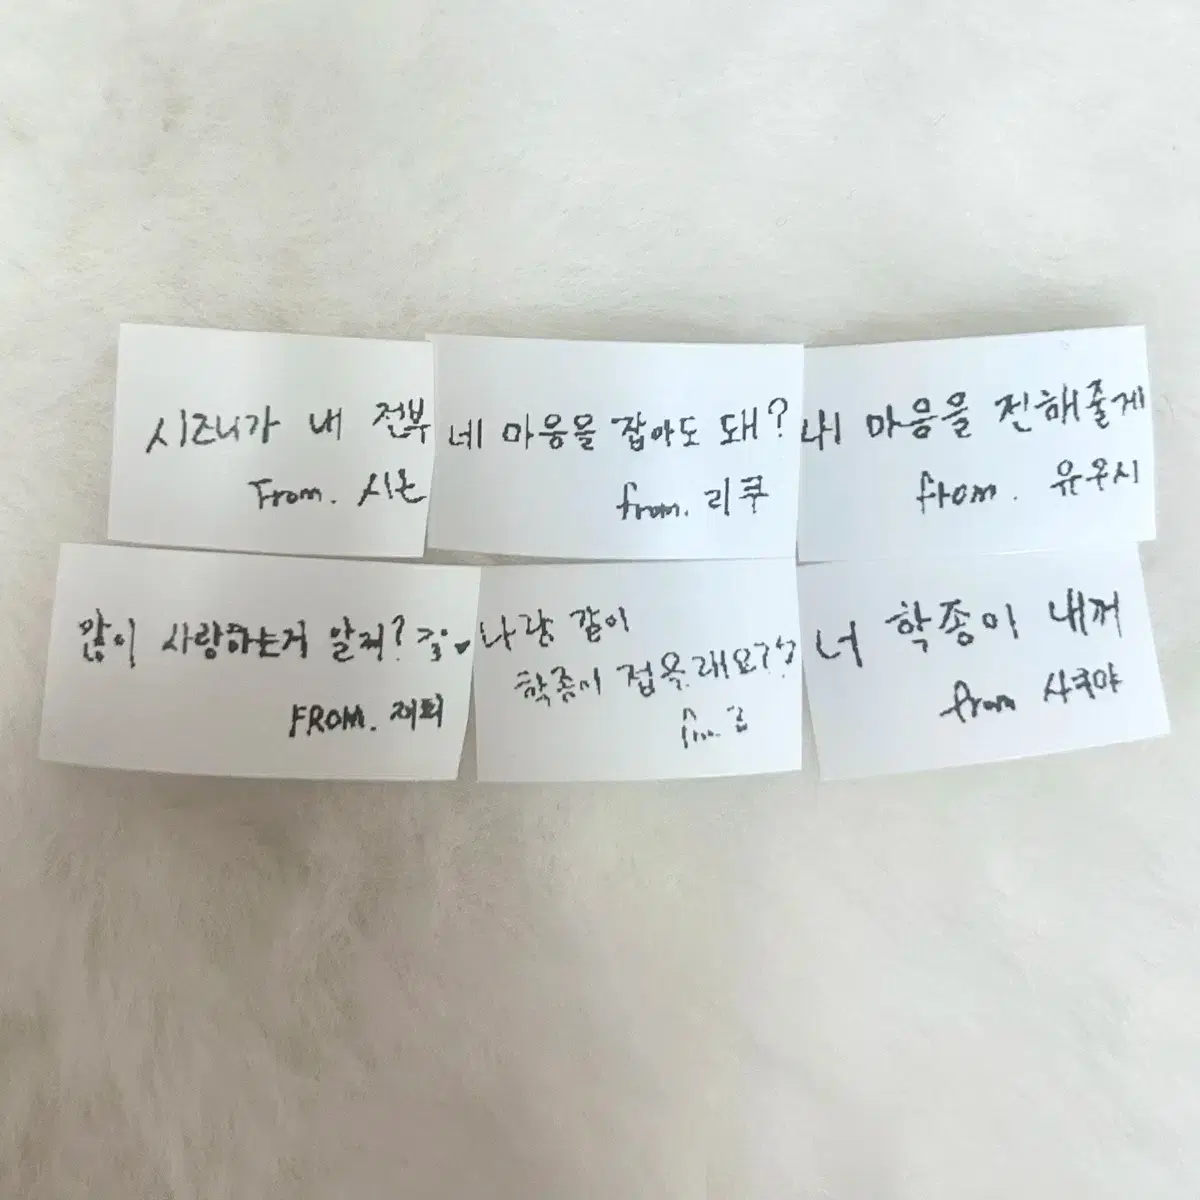 시즈니가 내 전부
From. 시온
네 마음을 잡아도 돼?
from. 리쿠
내 마음을 전해줄게
from. 유우시
많이 사랑하는거 알제?
FROM. 재희
나랑 같이
학종이 접을래요??
너 학종이 내꺼
from 사쿠야